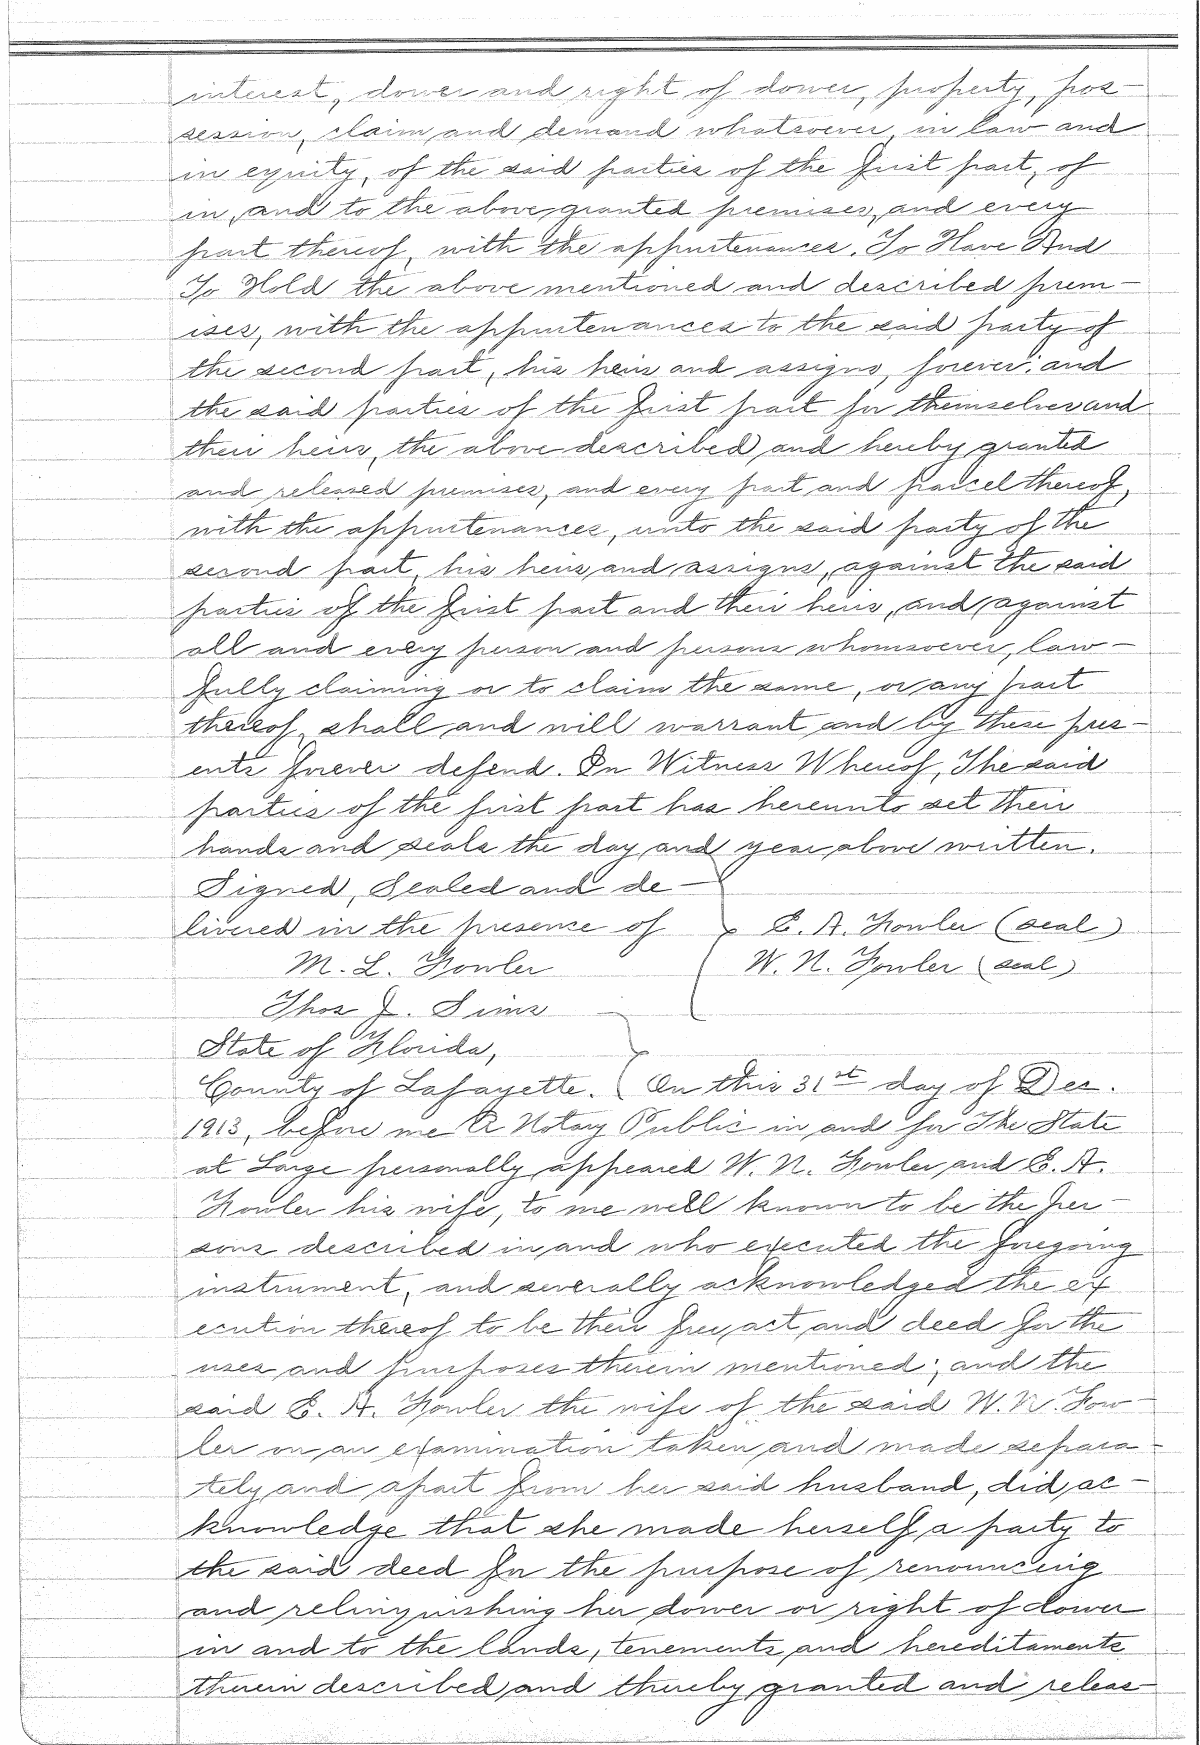 interest, dower and right of dower, property, pos-
session, claim and demand whatsoever, in law and
in equity, of the said parties of the first part, of
in, and to the above granted premises, and every
part thereof, with the appurtenances. To Have And
To Hold the above mentioned and described prem-
ises, with the appurtenances to the said party of
the second part, his heirs and assigns, forever; and
the said parties of the first part for themselves and
their heirs, the above described and hereby granted
and released premises, and every part and parcel thereof,
with the appurtenances, unto the said party of the
second part, his heirs and assigns, against the said
parties of the first part and their heirs, and against
all and every person and persons whomsoever, law-
fully claiming or to claim the same, or any part
thereof, shall and will warrant and by these pres-
ents forever defend. In Witness Whereof, The said
parties of the first part has hereunto set their
hands and seals the day and year above written.
Signed, Sealed and de-
livered in the presence of } E. A. Fowler (seal)
M. L. Fowler W. N. Fowler (seal)
Thos J. Sims
State of Florida,
County of Lafayette. } On this 31st day of Dec.
1913, before me A Notary Public in and for The State
at Large personally appeared W. N. Fowler and E. A.
Fowler his wife, to me well known to be the per-
sons described in and who executed the foregoing
instrument, and severally acknowledged the ex
ecution thereof to be their free act and deed for the
uses and purposes therein mentioned; and the
said E. A. Fowler the wife of the said W. N. Fow-
ler on an examination taken and made separa-
tely and apart from her said husband, did ac-
knowledge that she made herself a party to
the said deed for the purpose of renouncing
and relinquishing her dower or right of dower
in and to the lands, tenements and hereditaments
therein described and thereby granted and releas-